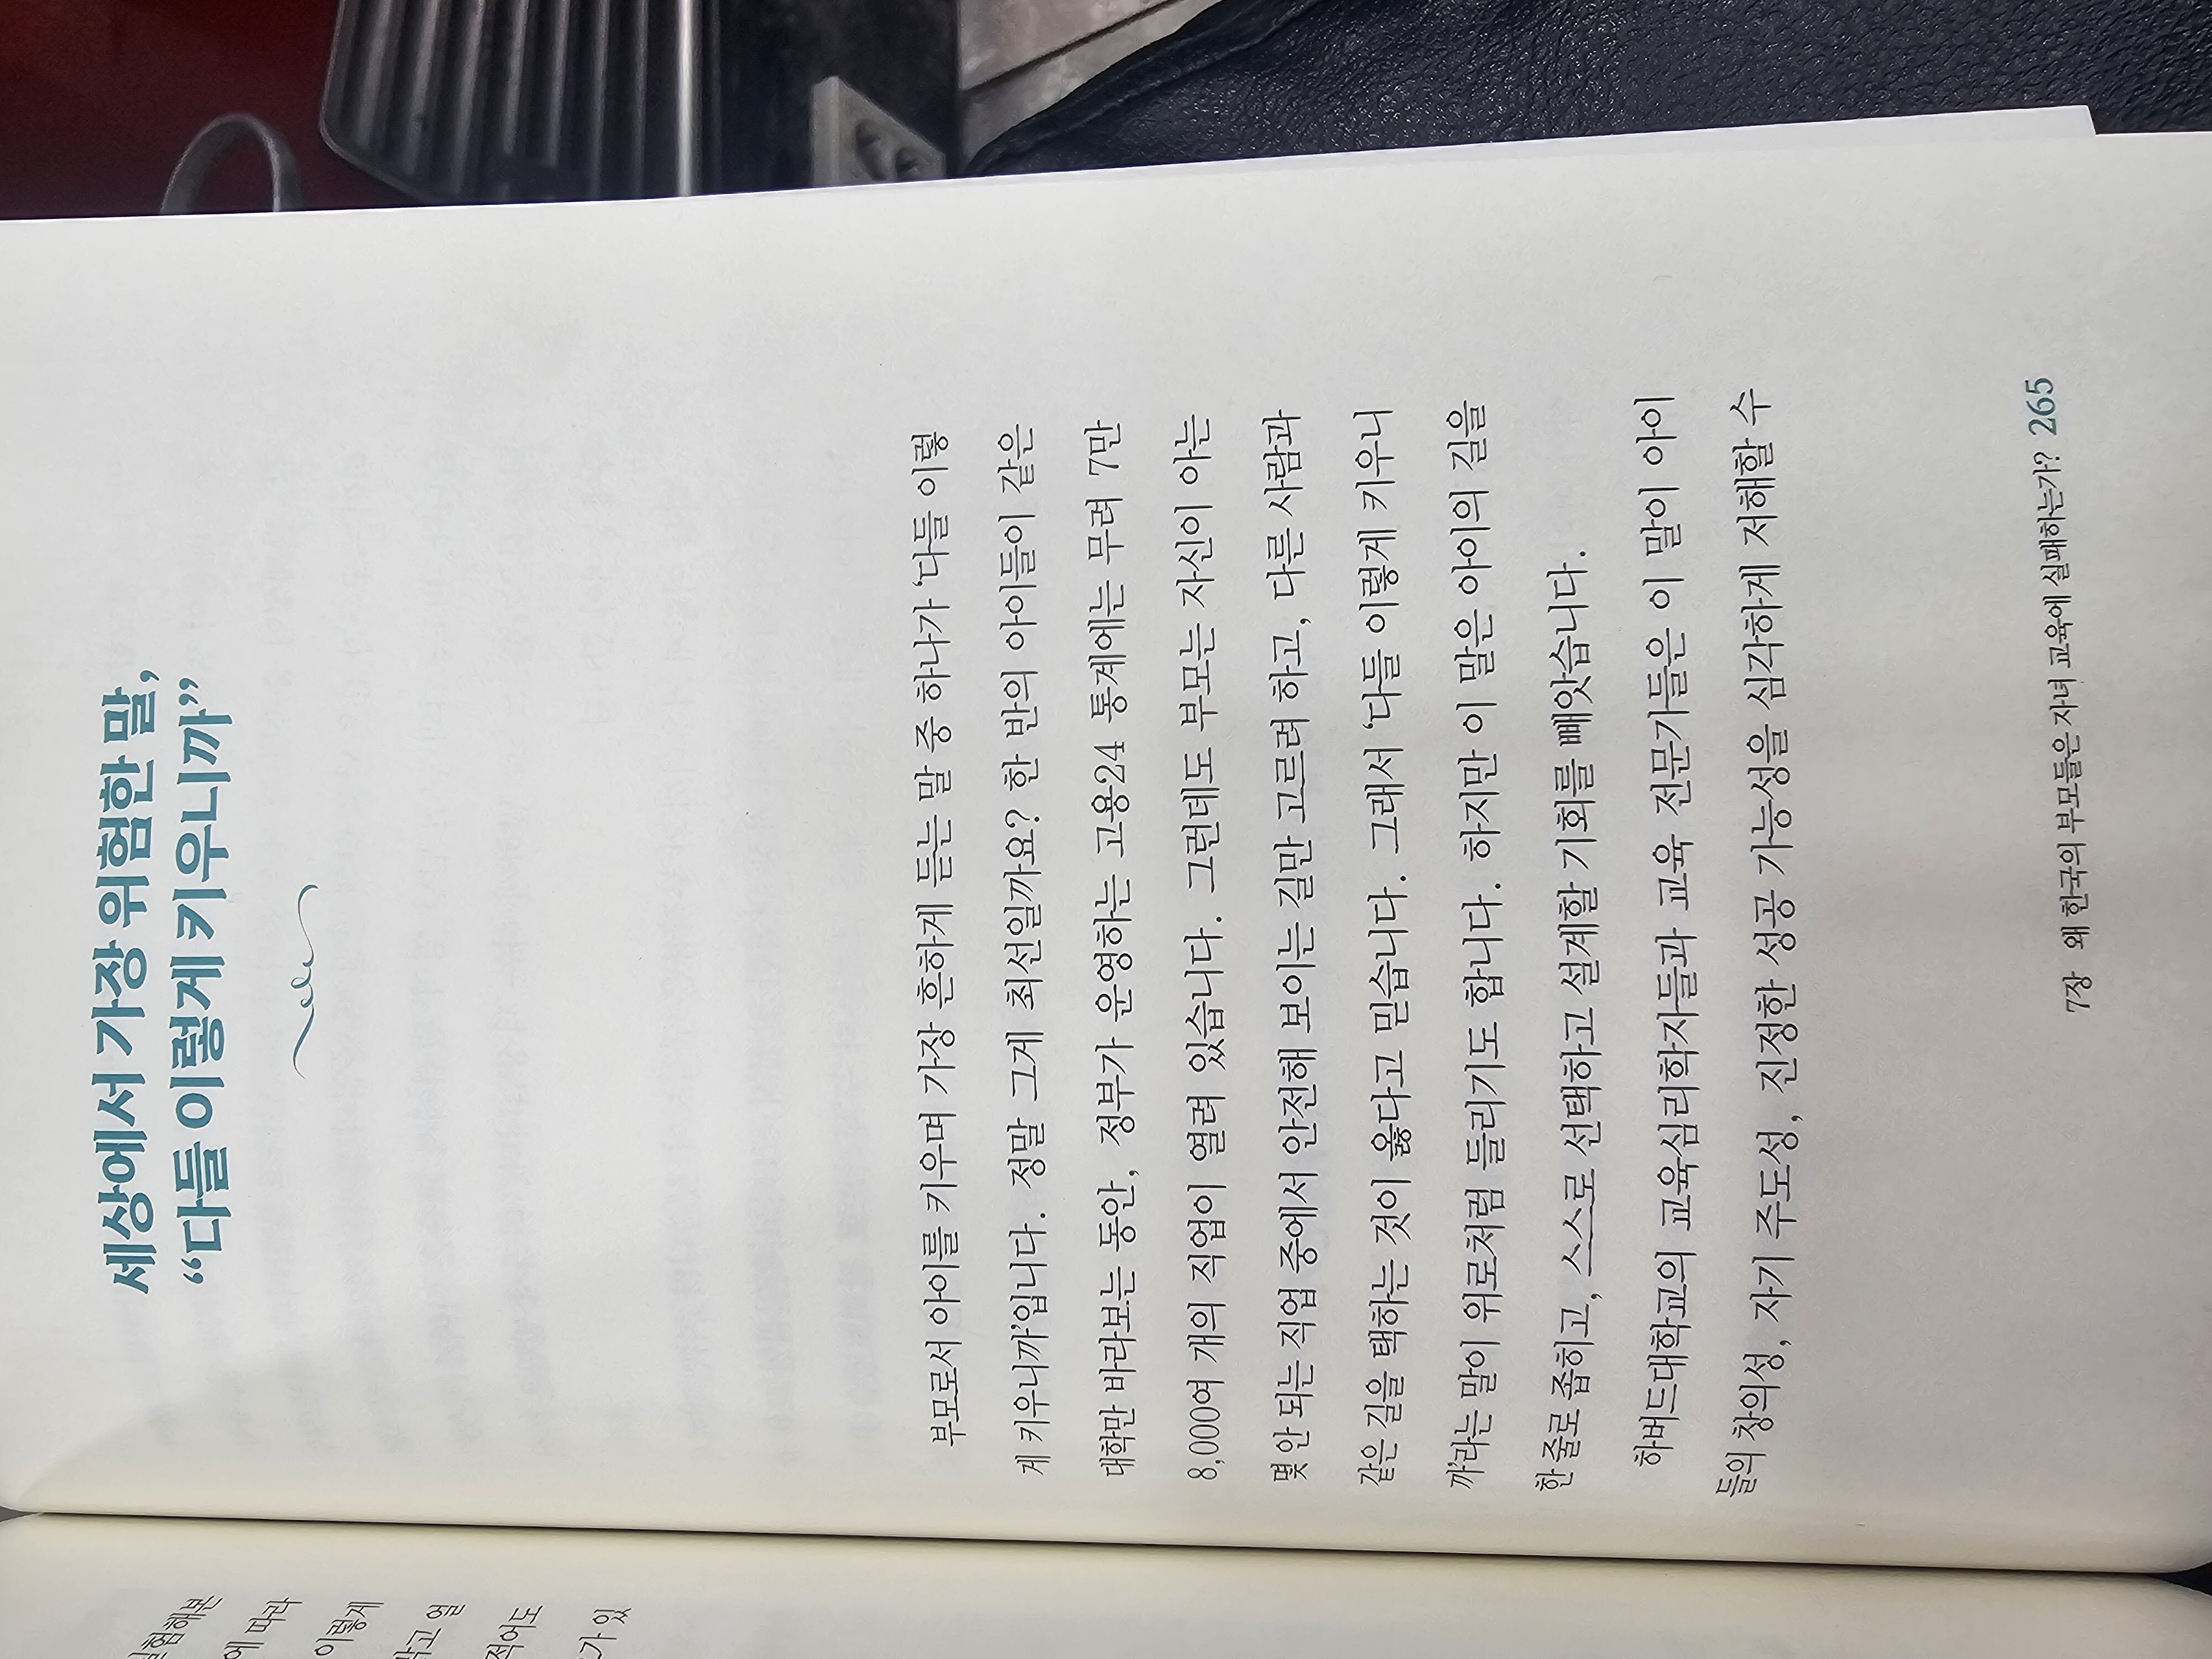 세상에서 가장 위험한 말,
“다들 이렇게 키우니까”
부모로서 아이를 키우며 가장 흔하게 듣는 말 중 하나가 ‘다들 이렇
게 키우니까’입니다. 정말 그게 최선일까요? 한 반의 아이들이 같은
대학만 바라보는 동안, 정부가 운영하는 고용24 통계에는 무려 7만
8,000여 개의 직업이 열려 있습니다. 그런데도 부모는 자신이 아는
몇 안 되는 직업 중에서 안전해 보이는 길만 고르려 하고, 다른 사람과
같은 길을 택하는 것이 옳다고 믿습니다. 그래서 ‘다들 이렇게 키우니
까’라는 말이 위로처럼 들리기도 합니다. 하지만 이 말은 아이의 길을
한 줄로 좁히고, 스스로 선택하고 설계할 기회를 빼앗습니다.
하버드대학교의 교육심리학자들과 교육 전문가들은 이 말이 아이
들의 창의성, 자기 주도성, 진정한 성공 가능성을 심각하게 저해할 수
7장 왜 한국의 부모들은 자녀 교육에 실패하는가? 265
에 따라
이렇게